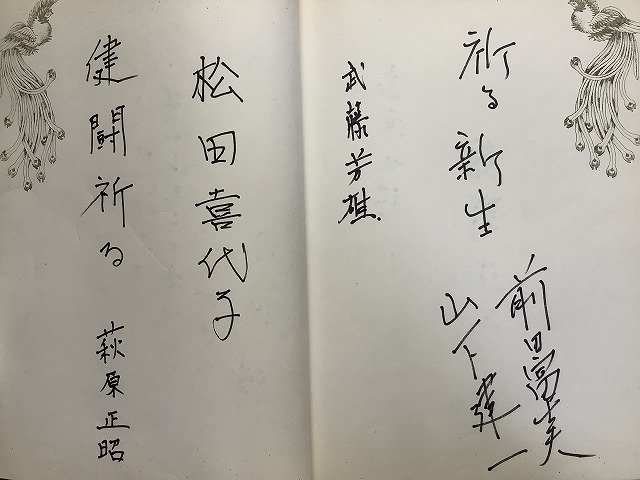 祈る新生
前田富士夫
山下建一
武藤芳雄
松田喜代子
健闘祈る 萩原正昭